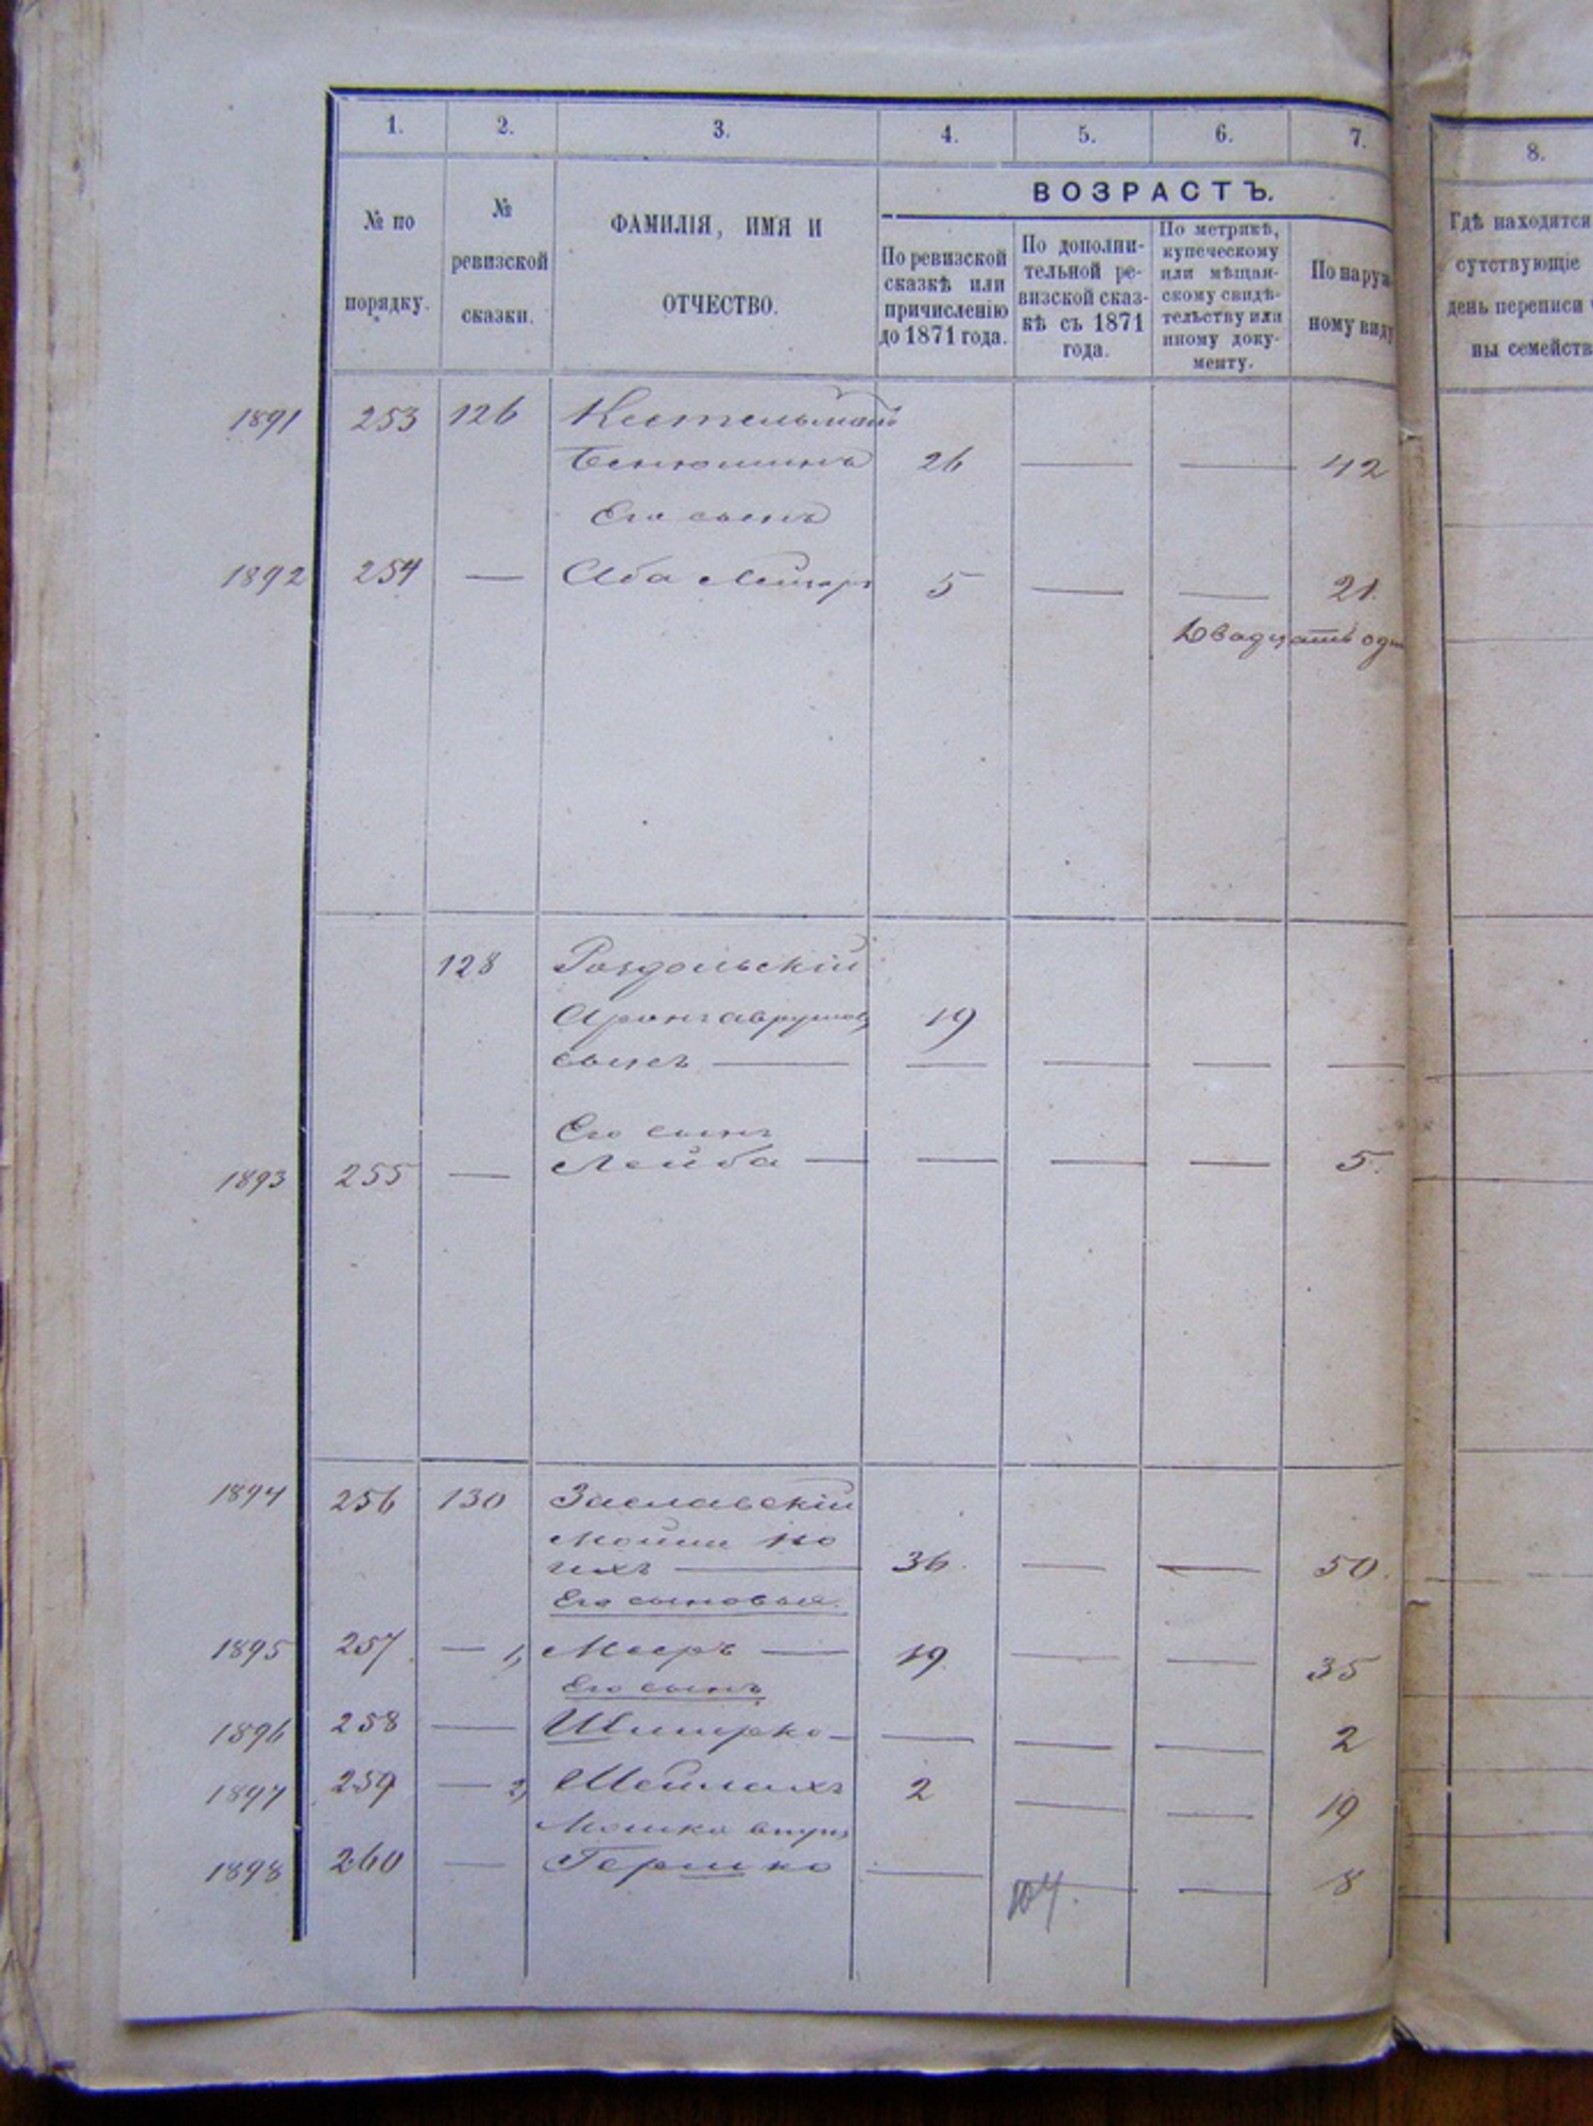 1. 2. 3. 4. 5. 6. 7. 8.
№ по порядку.
№ ревизской сказки.
ФАМИЛІЯ, ИМЯ И ОТЧЕСТВО.
ВОЗРАСТЪ.
По ревизской сказкѣ или причисленію до 1871 года.
По дополнительной ревизской сказкѣ съ 1871 года.
По метрикѣ, купеческому или мѣщанскому свидѣтельству или иному документу.
По наруж
ному виду
Гдѣ находятся
сутствующіе
день переписи
ны семейств
1891 253 126 Кестельманъ
Бенюминъ 26 — — 42
Его сынъ
1892 254 — Аба Лейзеръ 5 — — 21.
Двадцать оди
128 Роздольскій
Аронъ 19
сынъ — — — — —
Его сынъ
1893 255 — Лейба — — — — 5.
1894 256 130 Заславскій
Мошко
— 36. — — 50.
Его сыновья.
1895 257 — 1, Мееръ — 19 — — 35
Его сынъ
1896 258 — Шмирко — — — — 2
1897 259 — 2, Мейлахъ 2 — — 19
Мошко внукъ
1898 260 — Гершко — — — 8
104.